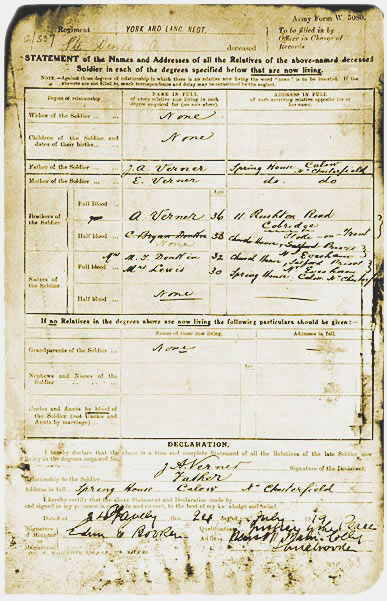 Army Form W. 5080.
Regiment YORK AND LANC. REGT.
To be filled in by
Officer in Charge of
Records
deceased
STATEMENT of the Names and Addresses of all the Relatives of the above-named deceased
Soldier in each of the degrees specified below that are now living.
NOTE.—Against those degrees of relationship in which there is no relative now living the word "none" is to be inserted. If the
answers are not filled in, much correspondence and delay may be occasioned by the neglect.
Degree of relationship
NAME IN FULL
of every relative now living in each
degree enquired for (see note above).
ADDRESS IN FULL
of each surviving relative opposite his or
her name.
Widow of the Soldier ... None
Children of the Soldier and
dates of their births... None
Father of the Soldier J. A. Verner Spring House Calow Nr Chesterfield
Mother of the Soldier E. Verner do. do
Age
Brothers of
the Soldier
Full Blood A. Verner 36 11 Rushton Road
Cobridge
Stoke-on-Trent
Half blood 38 Church House, Salford Priors
None Nr Evesham
Sisters of
the Soldier
Full blood 32 Church House, Salford Priors
Nr Evesham
Mrs Lewis 30 Spring House Calow Nr Chesterfield
Half blood None
If no Relatives in the degrees above are now living the following particulars should be given:—
Names of those now living.
Addresses in full.
Grandparents of the Soldier ... None
Nephews and Nieces of the
Soldier
Uncles and Aunts by blood of
the Soldier (not Uncles and
Aunts by marriage)
DECLARATION.
I hereby declare that the above is a true and complete Statement of all the Relatives of the late Soldier now
living in the degrees enquired for.
J. A. Verner Signature of the Declarant.
Relationship to the Soldier Father
Address in full Spring House Calow Nr Chesterfield
I hereby certify that the above Statement and Declaration made by
and signed in my presence is complete and correct, to the best of my knowledge and belief.
Dated at this 24 day of July 19
Signature
of Minister
or Magistrate
Qualification
Justice of the Peace
Address